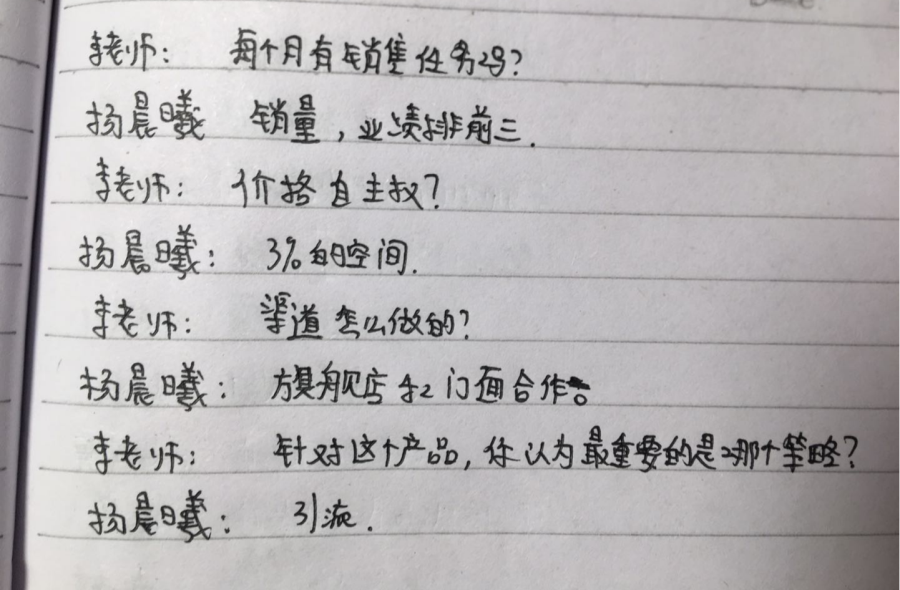 李老师: 每个月有销售任务吗?
杨晨曦 销量,业绩排前三.
李老师: 价格自主权?
杨晨曦: 3%的空间.
李老师: 渠道怎么做的?
杨晨曦: 旗舰店和门面合作。
李老师: 针对这个产品,你认为最重要的是哪个策略?
杨晨曦: 引流.